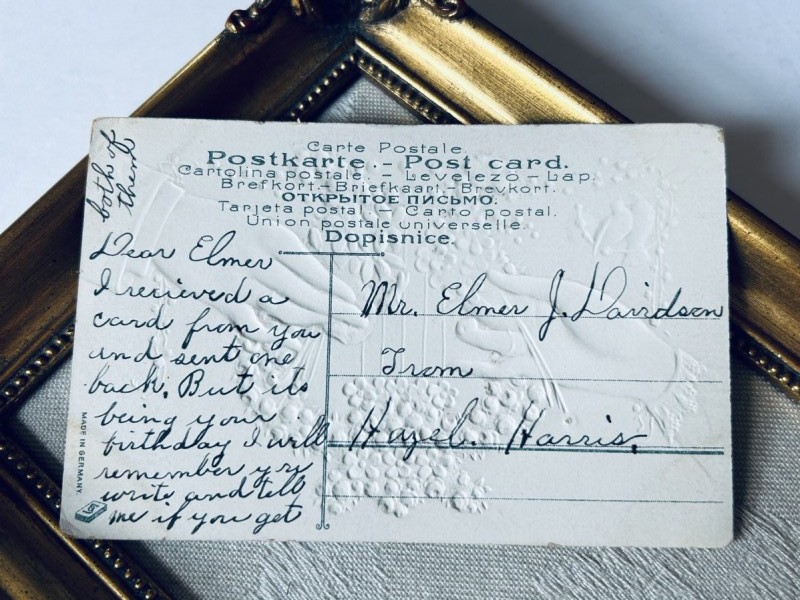 Carte Postale.
Postkarte. - Post card.
Cartolina postale. - Levelező - Lap.
Brefkort. - Briefkaart. - Brevkort.
ОТКРЫТОЕ ПИСЬМО.
Tarjeta postal. - Carto postal.
Union postale universelle.
Dopisnice.
Dear Elmer
I recieved a
card from you
and sent one
back. But its
being your
birthday I will
remember yu
write and tell
me if you get
both of
them
Mr. Elmer J. Davidson
From
Hazel. Harris.
MADE IN GERMANY.